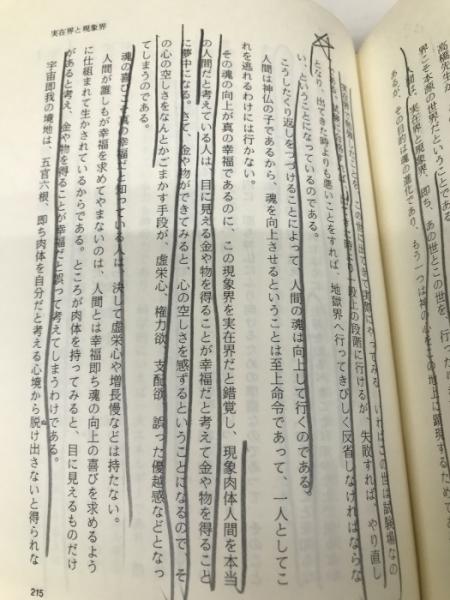 高橋先生
界こそ本源の世界だということである。
人間は、実在界と現象界、即ち、あの世とこの世を、行った
あるが、その目的は魂の進化であり、もう一つは神の心をこの地上に顕現するためで
実在界と現象界
この世に出て来て実際にやってみる。いわばこの世は試験場なの
段上の段階に行けるが、失敗すれば、やり直し
となり、出てきた時よりも悪いことをすれば、地獄界へ行ってきびしく反省しなければならな
い、ということになっているのである。
こうしたくり返しをつづけることによって、人間の魂は向上して行くのである。
人間は神仏の子であるから、魂を向上させるということは至上命令であって、一人としてこ
れを逃れるわけには行かない。
その魂の向上が真の幸福であるのに、この現象界を実在界だと錯覚し、現象肉体人間を本当
の人間だと考えている人は、目に見える金や物を得ることが幸福だと考えて金や物を得ること
に夢中になる。さて、金や物ができてみると、心の空しさを感ずるということになるので、そ
の心の空しさをなんとかごまかす手段が、虚栄心、権力欲、支配欲、誤った優越感などとなっ
てしまうのである。
魂の喜びこそ真の幸福だと知っている人は、決して虚栄心や増長慢などは持たない。
人間が誰しもが幸福を求めてやまないのは、人間とは幸福即ち魂の向上の喜びを求めるよう
に仕組まれて生かされているからである。ところが肉体を持ってみると、目に見えるものだけ
があると考え、金や物を得ることが幸福だと誤って考えてしまうわけである。
宇宙即我の境地は、五官六根、即ち肉体を自分だと考える心境から脱け出さないと得られな
215